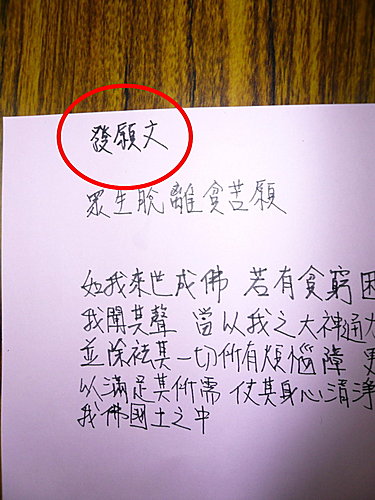 發願文
眾生脫離貧苦願
如我來世成佛 若有貧窮困
我聞其聲 當以我之大神通力
並除袪其一切所有煩惱障 更
以滿足其所需 使其身心清淨
我佛國土之中